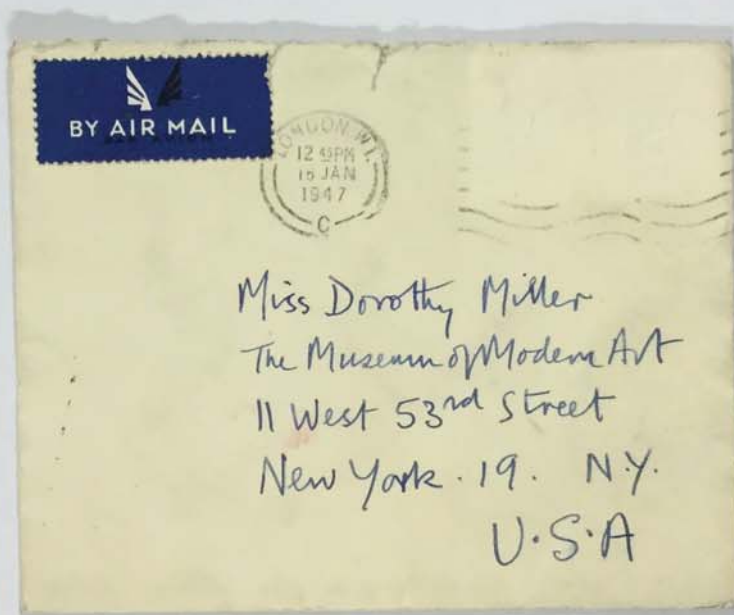 BY AIR MAIL
PAR AVION
LONDON. W.1.
12 45PM
16 JAN
1947
C
Miss Dorothy Miller
The Museum of Modern Art
11 West 53rd Street
New York . 19 . N.Y.
U.S.A